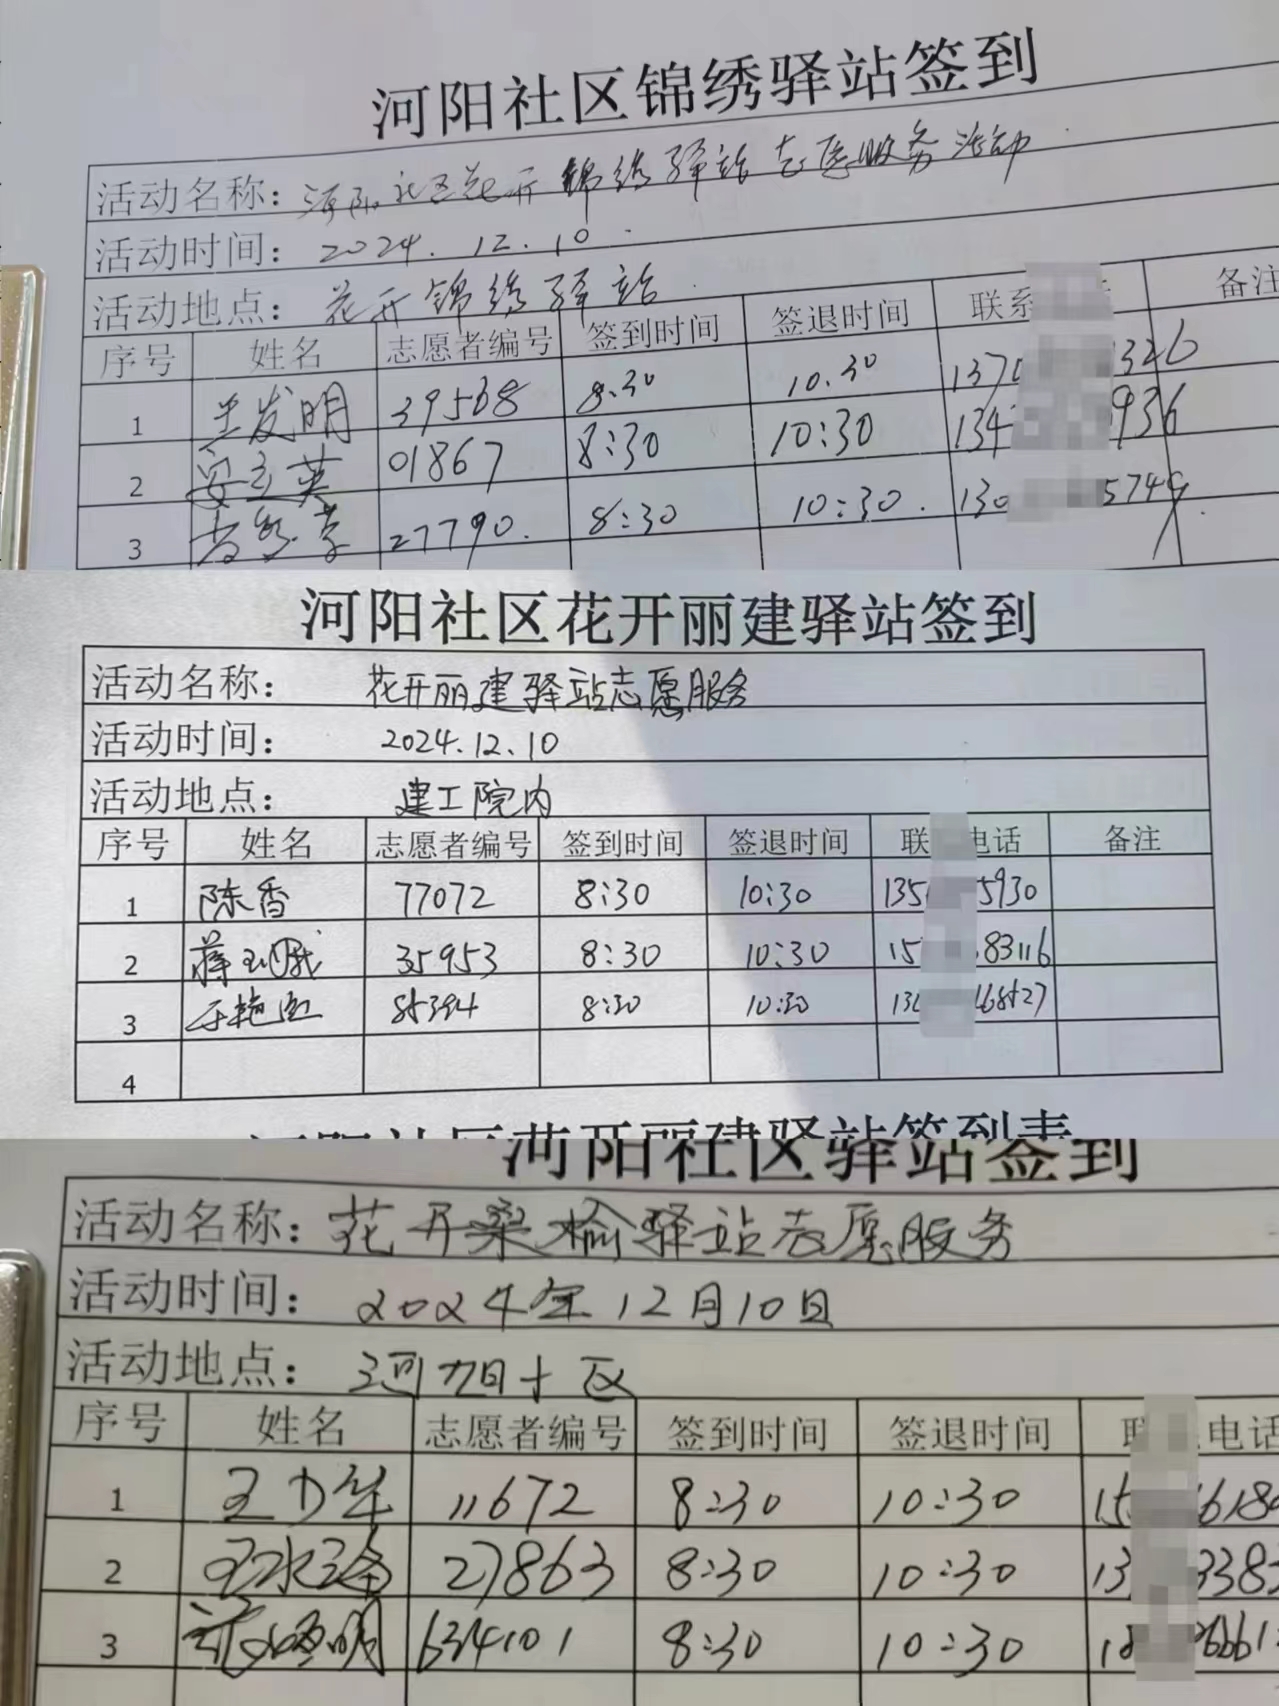 河阳社区锦绣驿站签到
活动名称：河阳社区花开锦绣驿站志愿服务活动
活动时间：2024.12.10
活动地点：花开锦绣驿站
序号 姓名 志愿者编号 签到时间 签退时间 联系 备注
1 发明 39568 8:30 10:30 1370 326
2 安立英 01867 8:30 10:30 134 936
3 27790 8:30 10:30 130 5749
河阳社区花开丽建驿站签到
活动名称： 花开丽建驿站志愿服务
活动时间： 2024.12.10
活动地点： 建工院内
序号 姓名 志愿者编号 签到时间 签退时间 联 电话 备注
1 陈香 77072 8:30 10:30 135 5930
2 蒋 35953 8:30 10:30 15 83116
3 于艳 85394 8:30 10:30 13 68527
4
河阳社区花开丽建驿站签到表
河阳社区驿站签到
活动名称：花开桑榆驿站志愿服务
活动时间：2024年12月10日
活动地点：河旭十区
序号 姓名 志愿者编号 签到时间 签退时间 联 电话
1 王 11672 8:30 10:30 15 6184
2 王永 27863 8:30 10:30 13 3383
3 明 634101 8:30 10:30 18